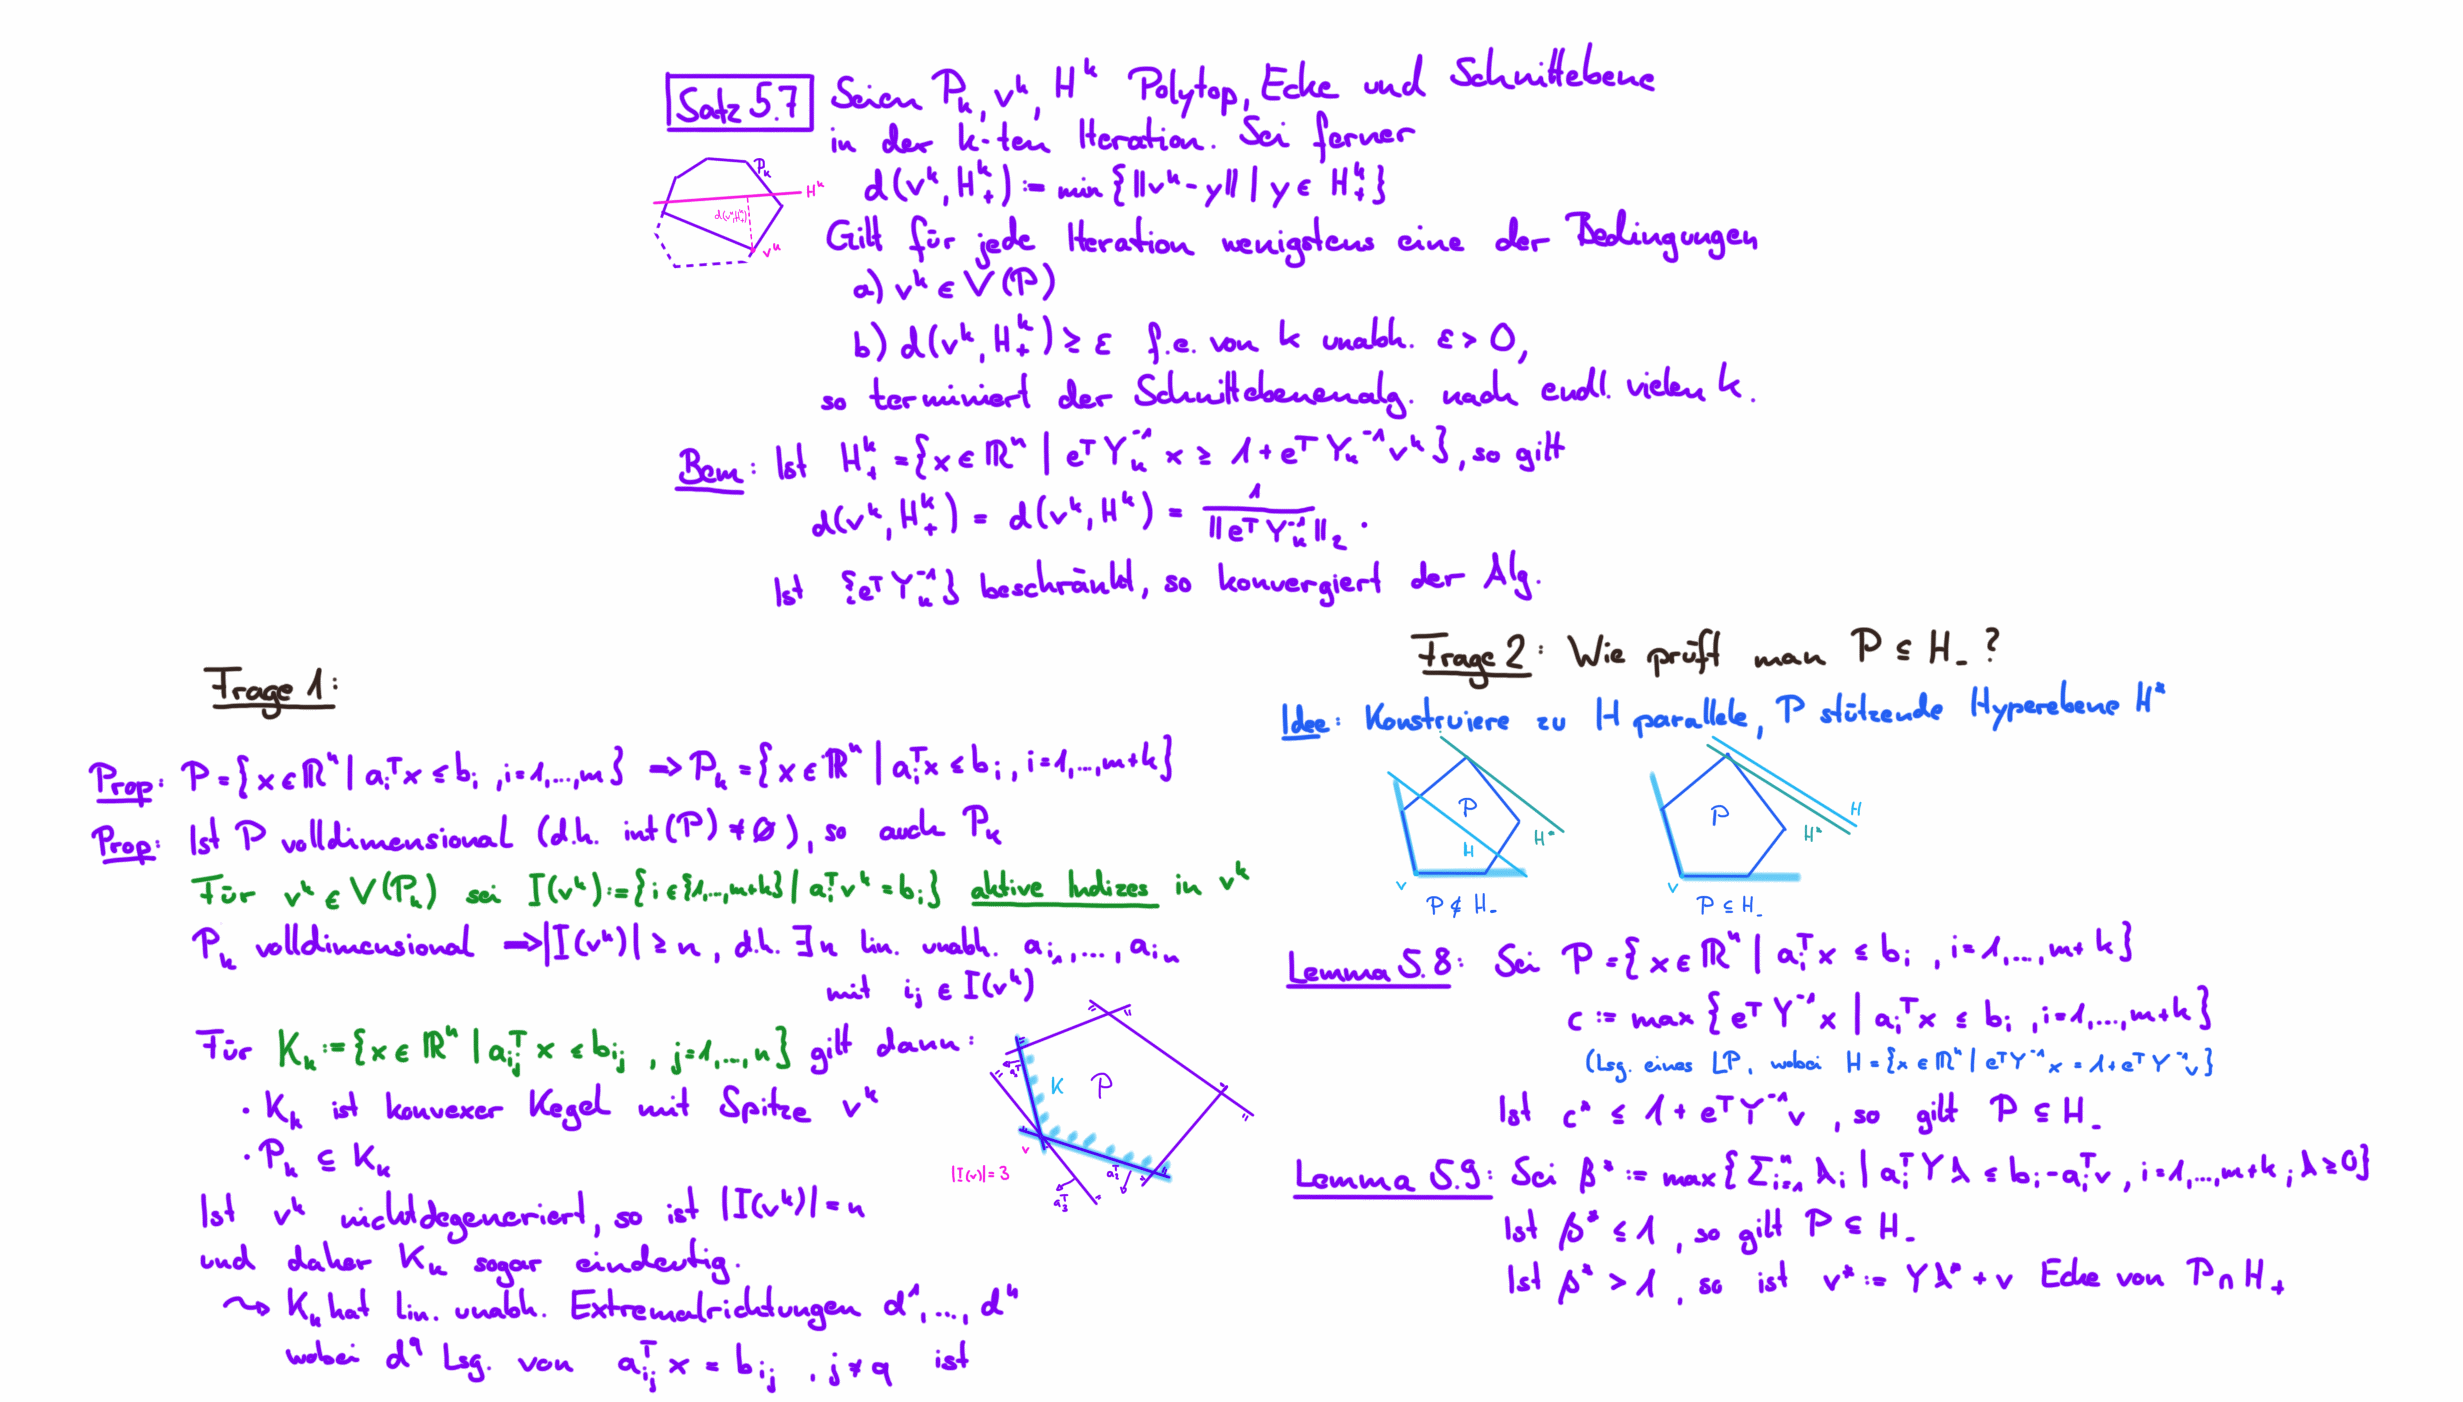 Satz 5.7 Seien P_k, v^k, H^k Polytop, Ecke und Schnittebene
in der k-ten Iteration. Sei ferner
d(v^k, H_+^k) := min {||v^k - y|| | y ∈ H_+^k}
Gilt für jede Iteration wenigstens eine der Bedingungen
a) v^k ∈ V(P)
b) d(v^k, H_+^k) ≥ ε f.e. von k unabh. ε > 0,
so terminiert der Schnittebenenalg. nach endl. vielen k.
P_k
H^k
d(v^k, H_+^k)
v^k
Bem: Ist H_+^k = {x ∈ ℝ^n | e^T Y_k^{-1} x ≥ 1 + e^T Y_k^{-1} v^k}, so gilt
d(v^k, H_+^k) = d(v^k, H^k) = 1 / ||e^T Y_k^{-1}||_2 .
Ist {e^T Y_k^{-1}} beschränkt, so konvergiert der Alg.
Frage 1:
Prop: P = {x ∈ ℝ^n | a_i^T x ≤ b_i, i=1,...,m} => P_k = {x ∈ ℝ^n | a_i^T x ≤ b_i, i=1,...,m+k}
Prop: Ist P volldimensional (d.h. int(P) ≠ ∅), so auch P_k
Für v^k ∈ V(P_k) sei I(v^k) := {i ∈ {1,...,m+k} | a_i^T v^k = b_i} aktive Indizes in v^k
P_k volldimensional => |I(v^k)| ≥ n, d.h. ∃ n lin. unabh. a_{i_1}, ..., a_{i_n}
mit i_j ∈ I(v^k)
Für K_k := {x ∈ ℝ^n | a_{i_j}^T x ≤ b_{i_j}, j=1,...,n} gilt dann:
· K_k ist konvexer Kegel mit Spitze v^k
· P_k ⊆ K_k
Ist v^k nichtdegeneriert, so ist |I(v^k)| = n
und daher K_k sogar eindeutig.
⇝ K_k hat lin. unabh. Extremalrichtungen d^1, ..., d^n
wobei d^q Lsg. von a_{i_j}^T x = b_{i_j}, j ≠ q ist
K
P
v
|I(v)| = 3
a_2^T
a_3^T
Frage 2: Wie prüft man P ⊆ H_- ?
Idee: Konstruiere zu H parallele, P stützende Hyperebene H*
P
H
H*
v
P ⊄ H_-
P
H
H*
v
P ⊆ H_-
Lemma 5.8: Sei P = {x ∈ ℝ^n | a_i^T x ≤ b_i, i=1,...,m+k}
c := max {e^T Y^{-1} x | a_i^T x ≤ b_i, i=1,...,m+k}
(Lsg. eines LP, wobei H = {x ∈ ℝ^n | e^T Y^{-1} x = 1 + e^T Y^{-1} v}
Ist c* ≤ 1 + e^T Y^{-1} v, so gilt P ⊆ H_-
Lemma 5.9: Sei β* := max {∑_{i=1}^n λ_i | a_i^T Y λ ≤ b_i - a_i^T v, i=1,...,m+k, λ ≥ 0}
Ist β* ≤ 1, so gilt P ⊆ H_-
Ist β* > 1, so ist v* := Yλ* + v Ecke von P ∩ H_+